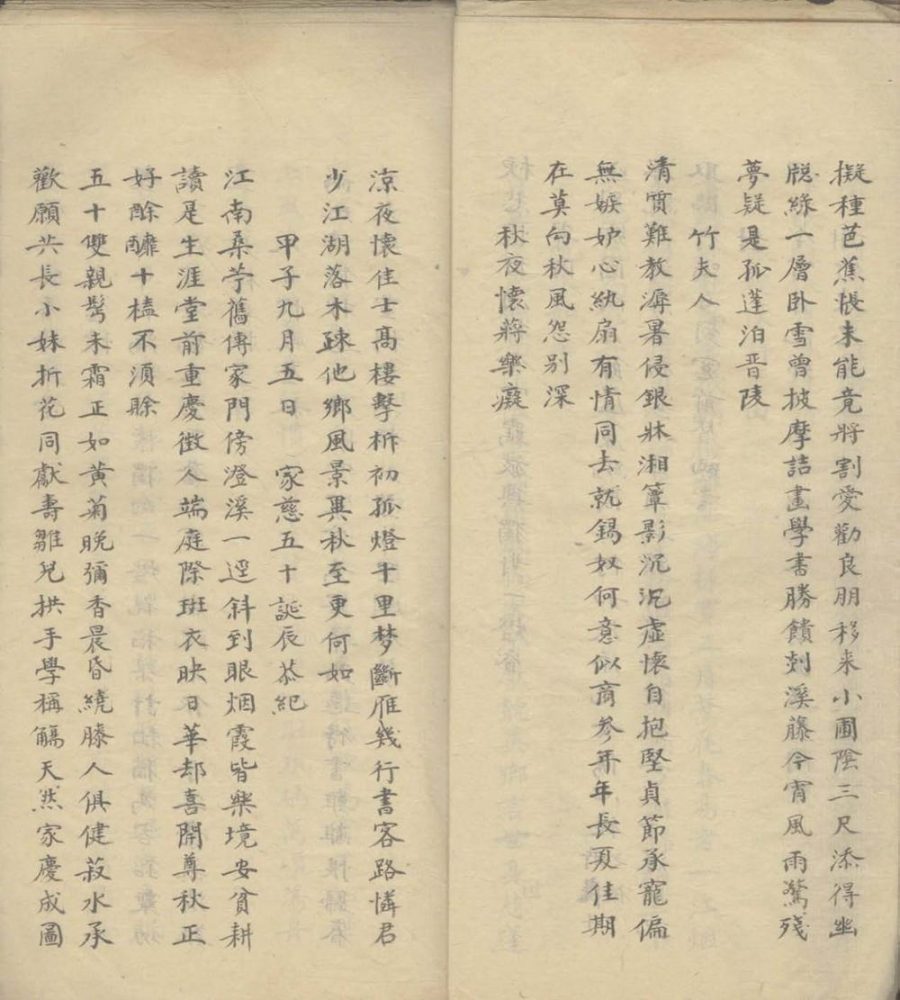 擬種芭蕉悵未能竟將割愛勸良朋移来小圃陰三尺添得幽
牕綠一層卧雪曾披摩詰畫學書勝饋剡溪藤今宵風雨驚残
夢疑是孤蓬泊晋陵
竹夫人
清質難教溽暑侵銀牀湘簟影沉沉虚懷自抱堅貞節承寵偏
無嫉妒心紈扇有情同去就錫奴何意似商参年年長夏佳期
在莫向秋風怨别深
秋夜懷蔣樂癡
凉夜懷佳士髙樓擊柝初孤燈千里梦斷雁幾行書客路憐君
少江湖落木疎他鄉風景異秋至更何如
甲子九月五日 家慈五十誕辰恭紀
江南桑苧舊傳家門傍澄溪一逕斜到眼烟霞皆樂境安貧耕
讀是生涯堂前重慶徴人端庭際斑衣映日華却喜開尊秋正
好酴醿十榼不須賒
五十雙親鬓未霜正如黄菊晚彌香晨昏繞膝人俱健菽水承
歡願共長小妹折花同獻壽雛兒拱手學稱觴天然家慶成圖